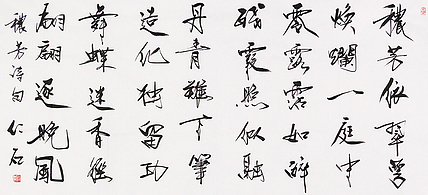 穠芳依翠萼
煥爛一庭中
零露霑如醉
殘霞照似融
丹青難下筆
造化獨留功
舞蝶迷香徑
翩翩逐晚風
穠芳詩句 仁石